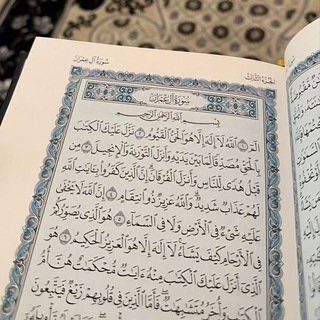 سُورَةُ آلِ عِمْرَانَ
الجُزْءُ الثَّالِثُ
سُورَةُ آلِ عِمْرَانَ
بِسْمِ اللَّهِ الرَّحْمَٰنِ الرَّحِيمِ
الٓمٓ ١ اللَّهُ لَا إِلَٰهَ إِلَّا هُوَ الْحَيُّ الْقَيُّومُ ٢ نَزَّلَ عَلَيْكَ الْكِتَٰبَ
بِالْحَقِّ مُصَدِّقًا لِّمَا بَيْنَ يَدَيْهِ وَأَنزَلَ التَّوْرَىٰةَ وَالْإِنجِيلَ ٣ مِن
قَبْلُ هُدًى لِّلنَّاسِ وَأَنزَلَ الْفُرْقَانَ إِنَّ الَّذِينَ كَفَرُوا بِـَٔايَٰتِ اللَّهِ
لَهُمْ عَذَابٌ شَدِيدٌ وَاللَّهُ عَزِيزٌ ذُو انتِقَامٍ ٤ إِنَّ اللَّهَ لَا يَخْفَىٰ
عَلَيْهِ شَيْءٌ فِي الْأَرْضِ وَلَا فِي السَّمَاءِ ٥ هُوَ الَّذِي يُصَوِّرُكُمْ
فِي الْأَرْحَامِ كَيْفَ يَشَاءُ لَا إِلَٰهَ إِلَّا هُوَ الْعَزِيزُ الْحَكِيمُ ٦ هُوَ
الَّذِي أَنزَلَ عَلَيْكَ الْكِتَٰبَ مِنْهُ ءَايَٰتٌ مُّحْكَمَٰتٌ هُنَّ أُمُّ
الْكِتَٰبِ وَأُخَرُ مُتَشَٰبِهَٰتٌ فَأَمَّا الَّذِينَ فِي قُلُوبِهِمْ زَيْغٌ فَيَتَّبِعُونَ